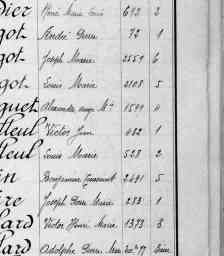 dier René Marie Louis 613 2
got André Pierre 72 1
got Joseph Marie 2559 6
got Louis Marie 2108 5
guet Alexandre ange Mie 1599 4
lleul Victor Jean 482 1
lleul Louis Marie 528 2
in Bonjamin Toussaint 2491 5
re Joseph Pierre Marie 283 1
lard Victor Henri Marie 1373 3
lard Adolphe Pierre